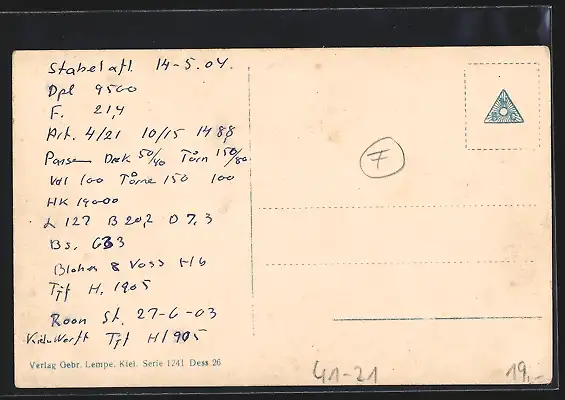 Stabel afl. 14-5.04.
Dpl 9500
F. 21,4
Art. 4/21 10/15 14 88
Panser Dæk 50/40 Tårn 150/80
Vol 100 Tårne 150 100
HK 19000
L 127 B 20,2 D 7,3
Bs. 633
Blohm & Voss
Tjf H. 1905
Roon St. 27-6-03
Kiel Werft Tjf H/905
Verlag Gebr. Lempe, Kiel. Serie 1241 Dess 26
F
41-21
19,-